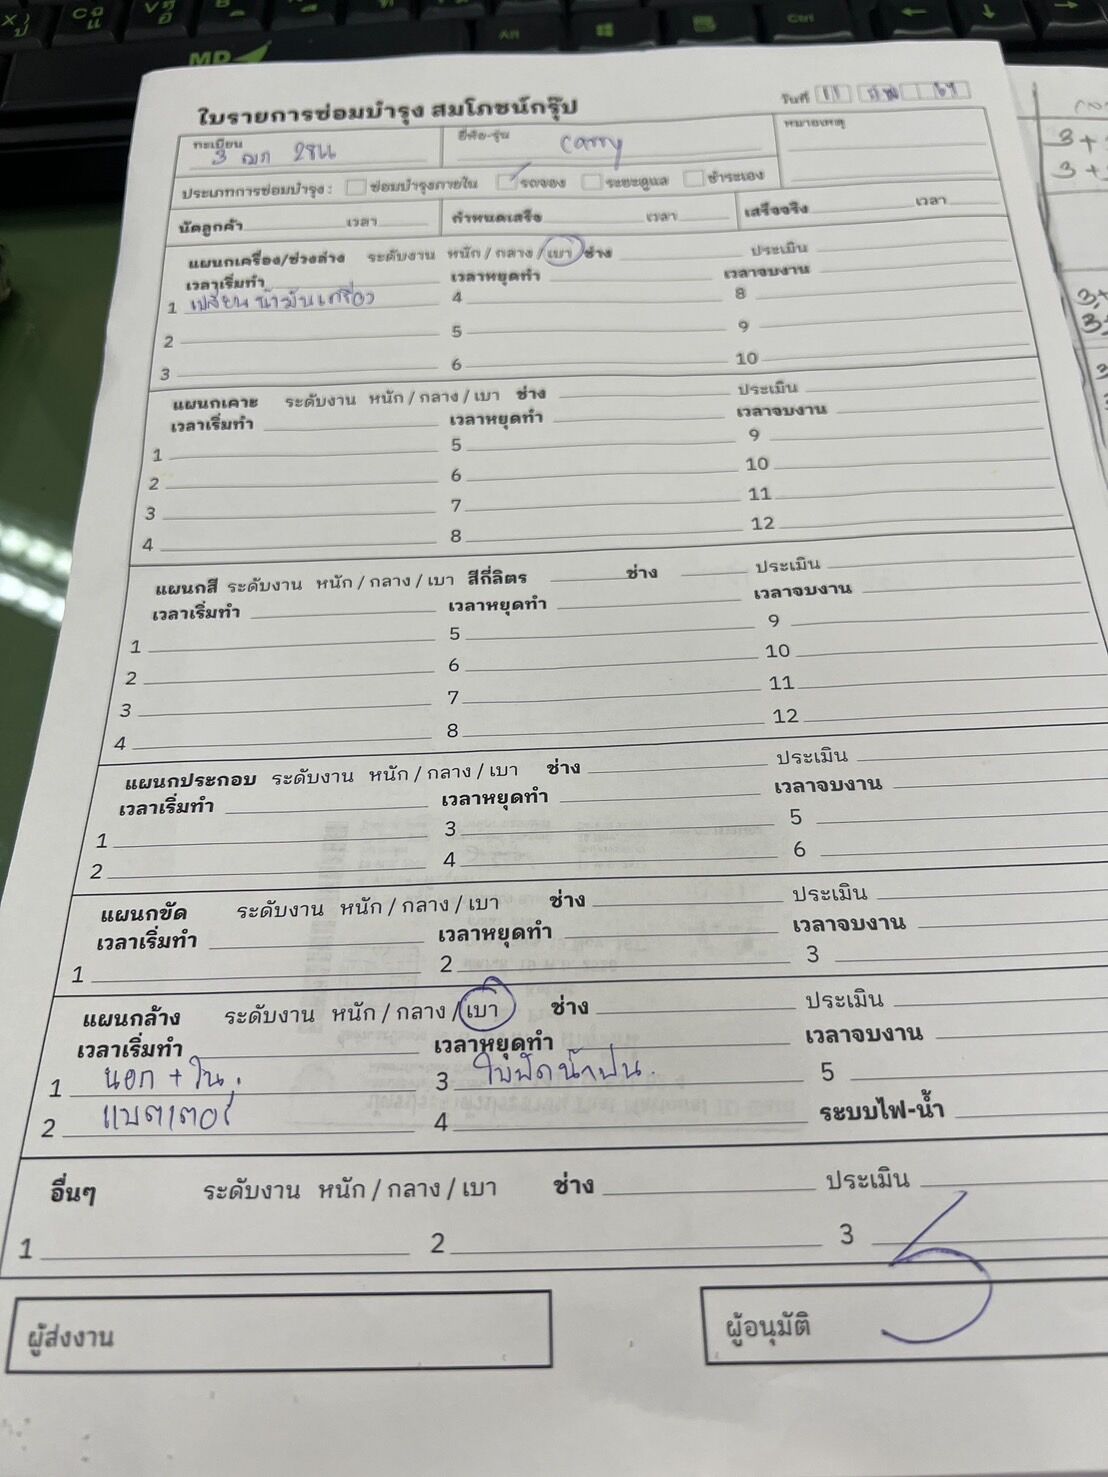 Alt
Ctrl
ใบรายการซ่อมบำรุง สมโภชน์กรุ๊ป
วันที่ 11
ทะเบียน 3 ฒก
ยี่ห้อ-รุ่น carry
หมายเหตุ
ประเภทการซ่อมบำรุง : ซ่อมบำรุงภายใน รถจอง ระยะดูแล ชำระเอง
นัดลูกค้า เวลา กำหนดเสร็จ เวลา เสร็จจริง เวลา
แผนกเครื่อง/ช่วงล่าง ระดับงาน หนัก / กลาง / เบา ช่าง ประเมิน
เวลาเริ่มทำ เวลาหยุดทำ เวลาจบงาน
1 เปลี่ยนน้ำมันเครื่อง 4 8
2 5 9
3 6 10
แผนกเคาะ ระดับงาน หนัก / กลาง / เบา ช่าง ประเมิน
เวลาเริ่มทำ เวลาหยุดทำ เวลาจบงาน
1 5 9
2 6 10
3 7 11
4 8 12
แผนกสี ระดับงาน หนัก / กลาง / เบา สีกี่ลิตร ช่าง ประเมิน
เวลาเริ่มทำ เวลาหยุดทำ เวลาจบงาน
1 5 9
2 6 10
3 7 11
4 8 12
แผนกประกอบ ระดับงาน หนัก / กลาง / เบา ช่าง ประเมิน
เวลาเริ่มทำ เวลาหยุดทำ เวลาจบงาน
1 3 5
2 4 6
แผนกขัด ระดับงาน หนัก / กลาง / เบา ช่าง ประเมิน
เวลาเริ่มทำ เวลาหยุดทำ เวลาจบงาน
1 2 3
แผนกล้าง ระดับงาน หนัก / กลาง / เบา ช่าง ประเมิน
เวลาเริ่มทำ เวลาหยุดทำ เวลาจบงาน
1 นอก + ใน. 3 ใบปัดน้ำฝน. 5
2 แบตเตอรี่ 4 ระบบไฟ-น้ำ
อื่นๆ ระดับงาน หนัก / กลาง / เบา ช่าง ประเมิน
1 2 3
ผู้ส่งงาน
ผู้อนุมัติ